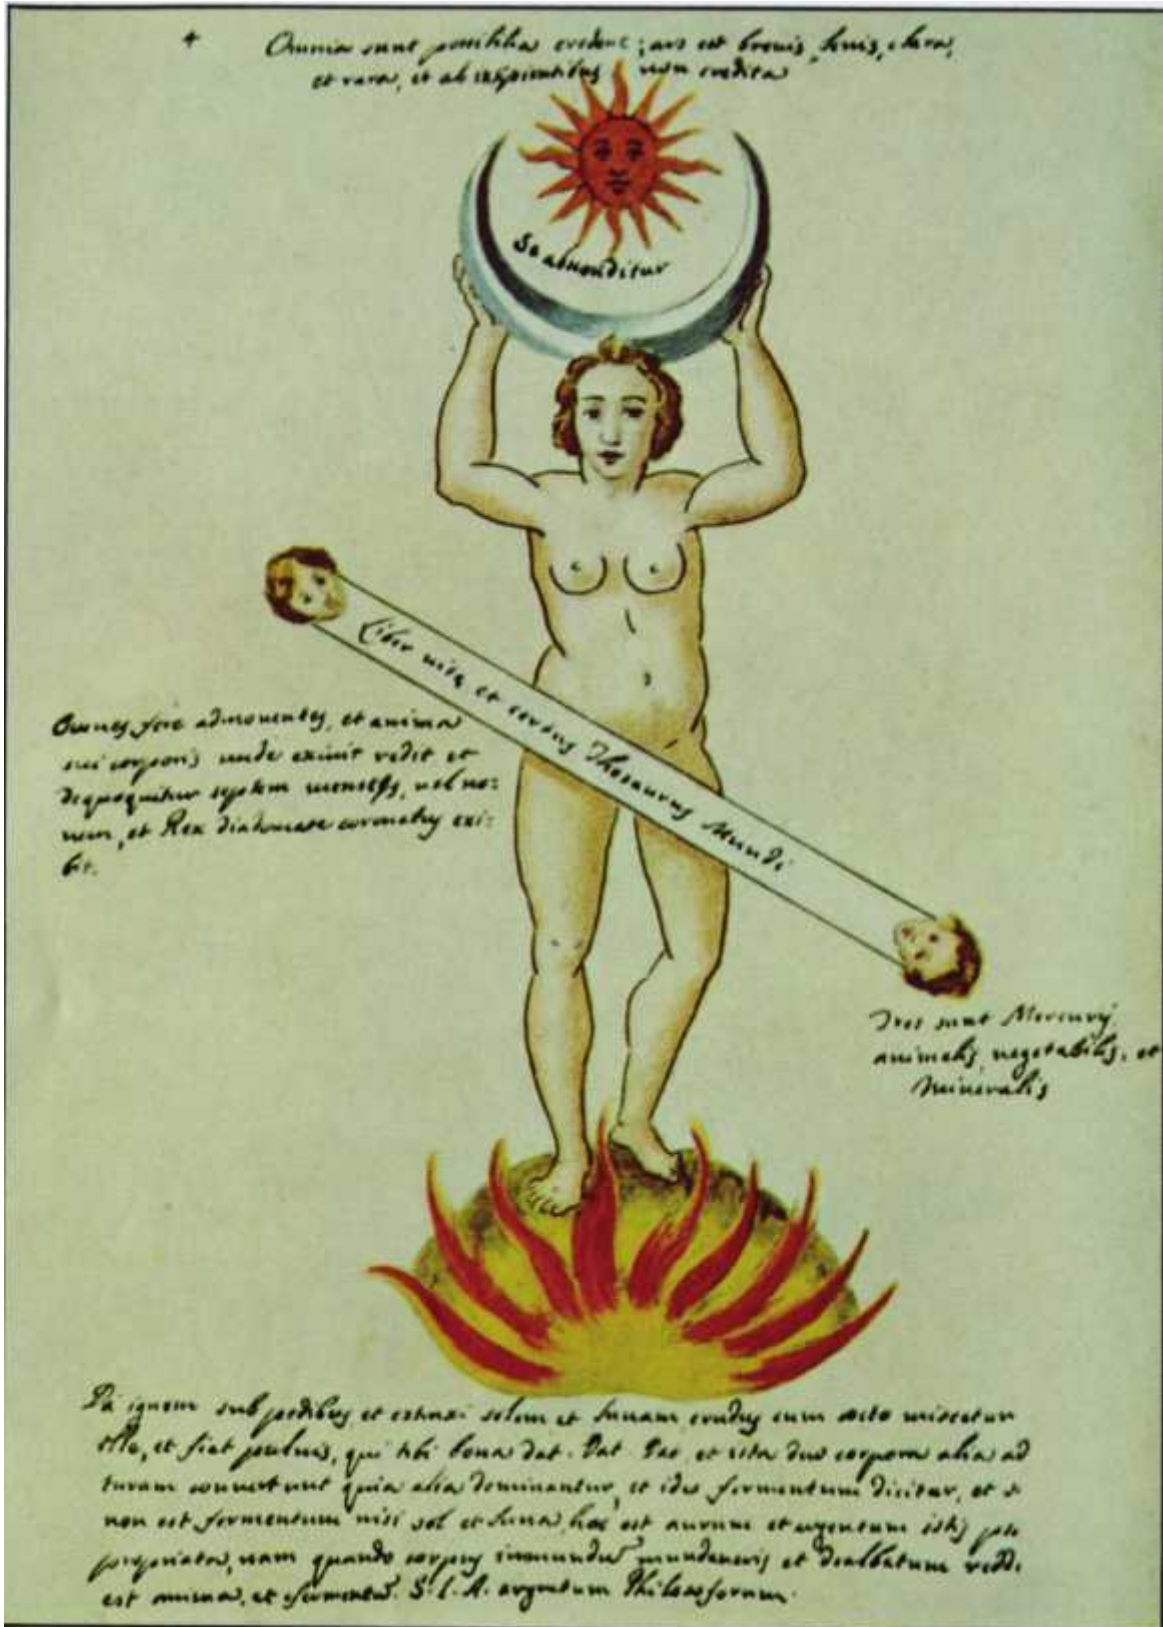 Omnia sunt possibilia credenti; ars est brevis, levis, clara,
et rara, et ab insipientibus non credita
Se absconditur
Liber vitę et verus Thesaurus Mundi
Omnes fere admonentes, et anima
sui corporis unde exivit redit et
dequoquitur septem menses, vel no:
nem, et Rex diademate coronatus exi:
bit.
Tres sunt Mercurij
animalis, vegetabilis, et
Mineralis
Da ignem sub pedibus et extraxi solem et Lunam crudus cum octo miscetur
ille, et fiat pulvis, qui tibi bona dat. Dat. et ista duo corpora alia ad
turam convertunt quia alia dominantur, et ideo fermentum dicitur, et
non est fermentum nisi sol et Luna, hoc est aurum et argentum
propriata, nam quando corpus inmundum mundaveris et dealbatum
est anima, et fermentū. S. L. A. argentum Philosoforum.